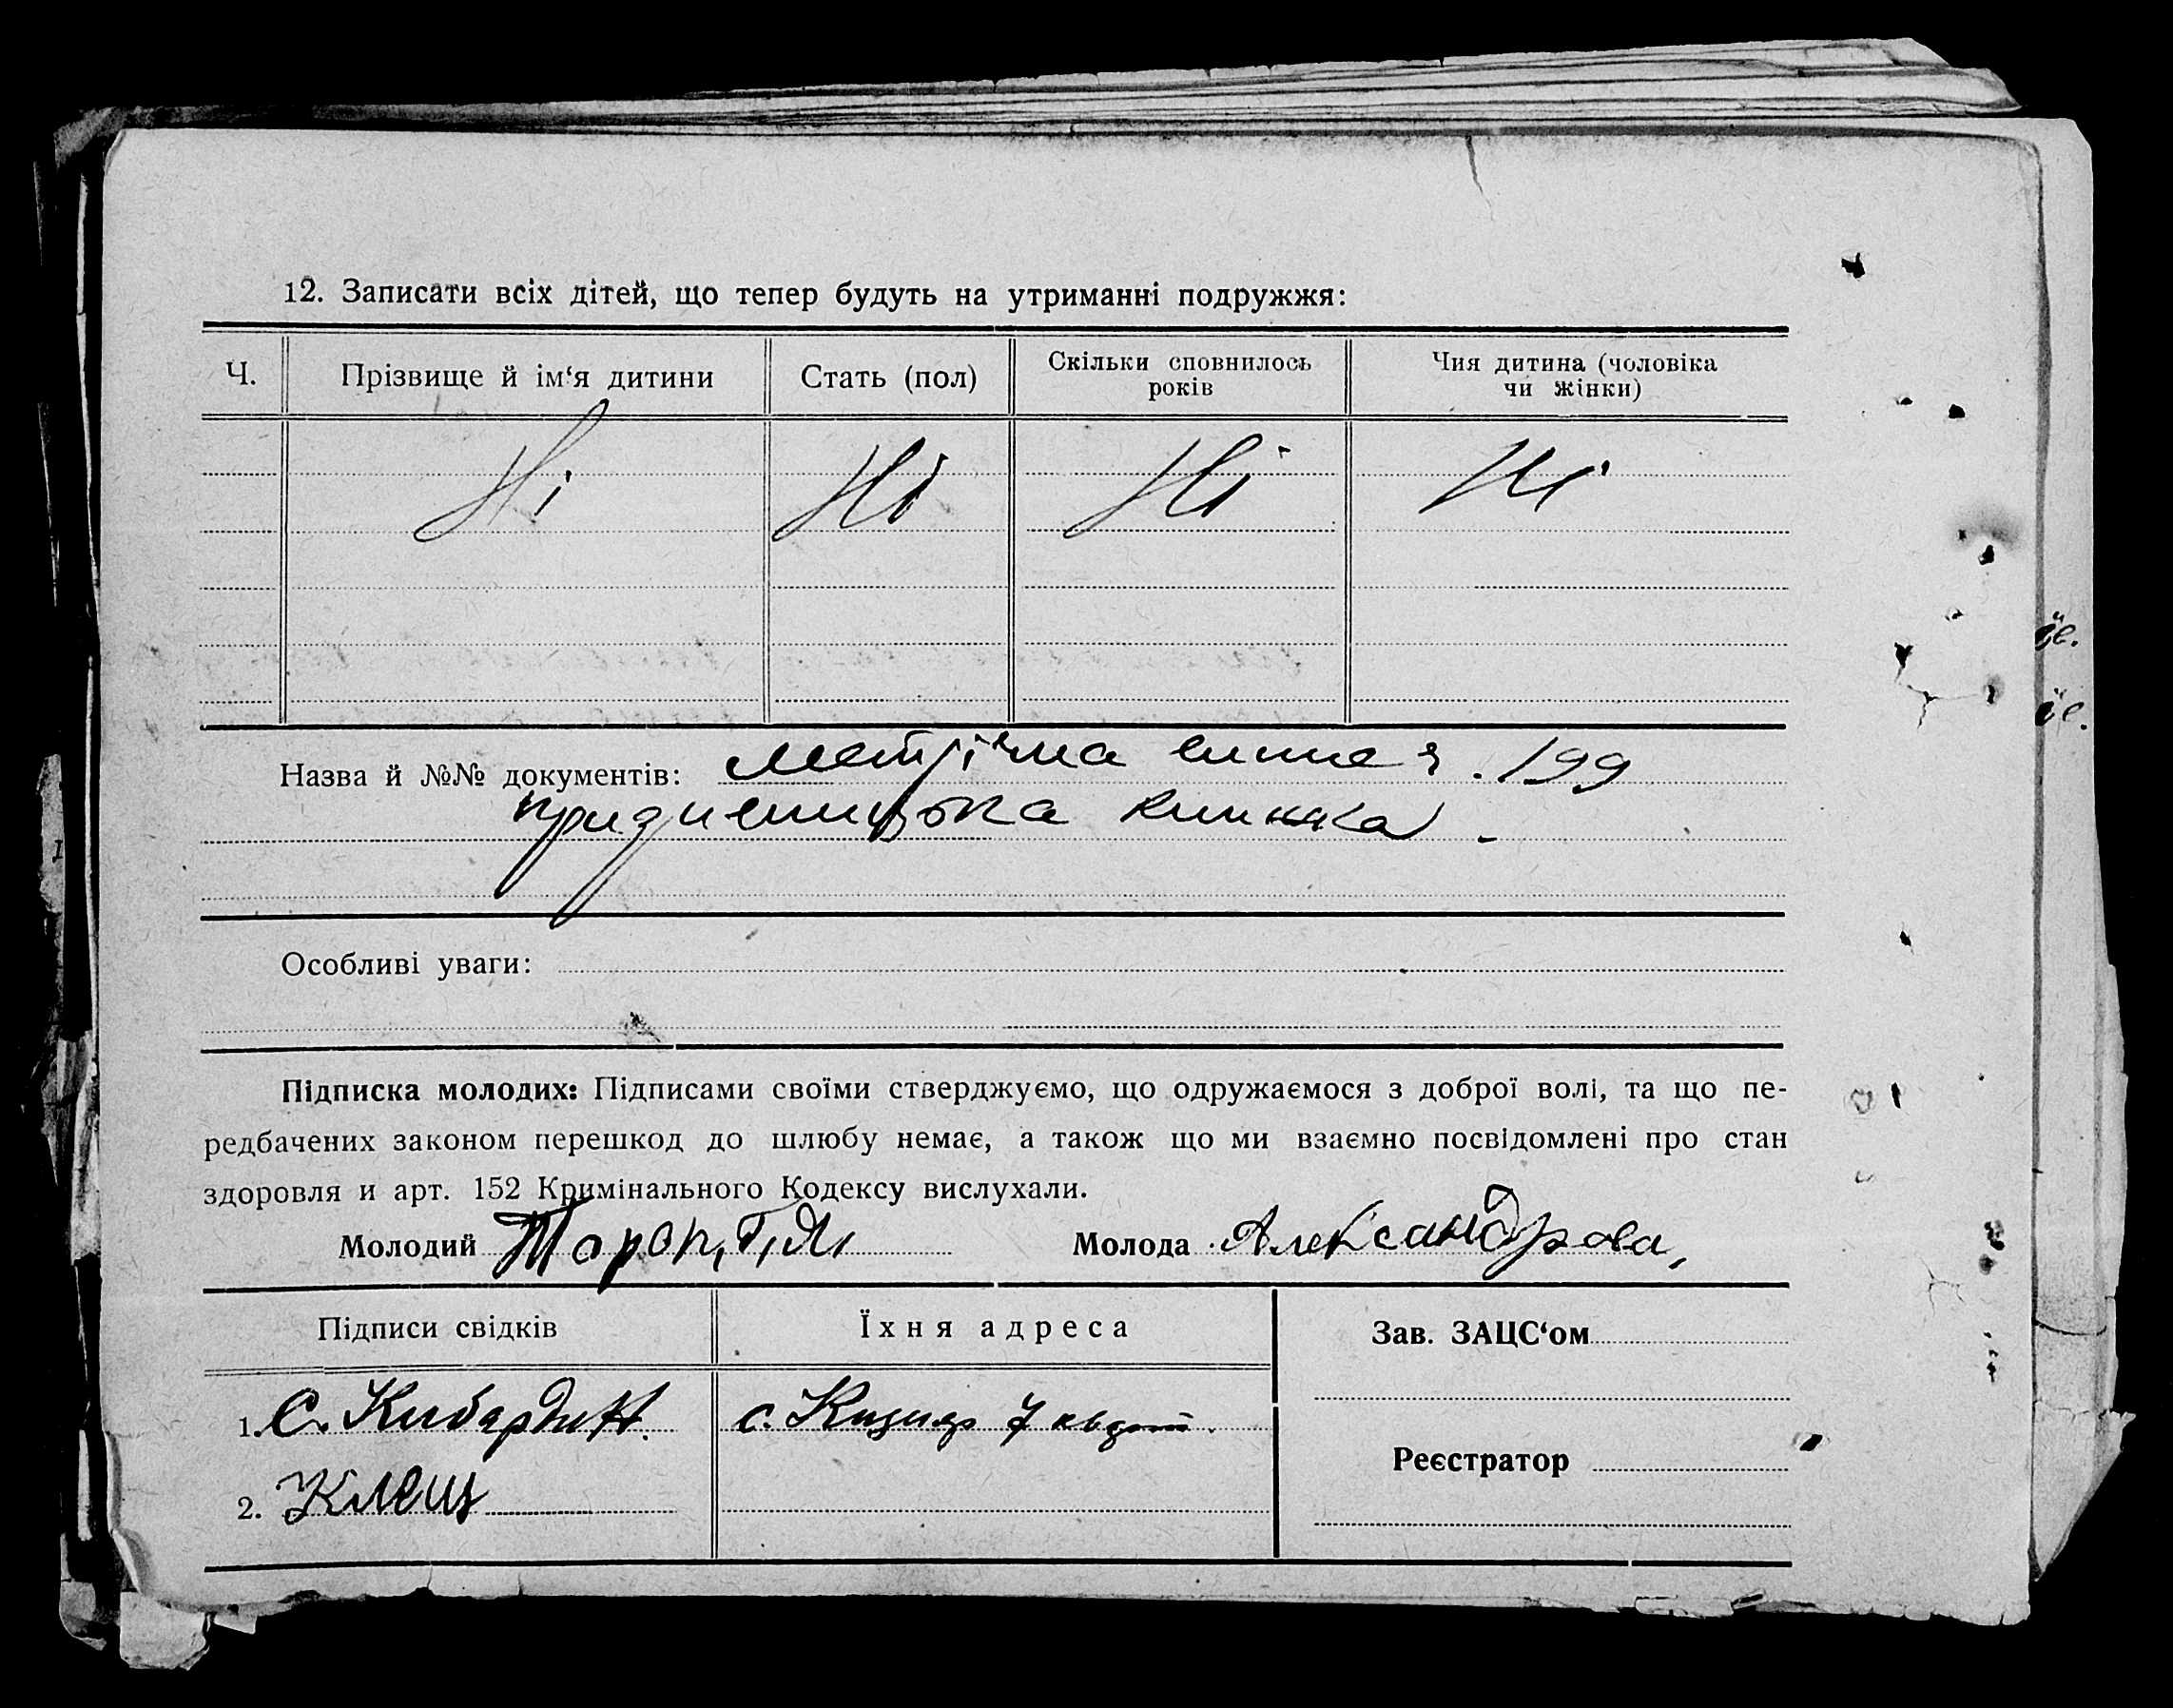 12. Записати всіх дітей, що тепер будуть на утриманні подружжя:
Ч. Прізвище й ім‘я дитини Стать (пол) Скільки сповнилось років Чия дитина (чоловіка чи жінки)
Ні Ні Ні Ні
Назва й №№ документів: Метрічна 199
книжка
Особливі уваги:
Підписка молодих: Підписами своїми стверджуємо, що одружаємося з доброї волі, та що пе-
редбачених законом перешкод до шлюбу немає, а також що ми взаємно посвідомлені про стан
здоровля и арт. 152 Кримінального Кодексу вислухали.
Молодий Молода Александрова,
Підписи свідків Їхня адреса Зав. ЗАЦС‘ом
1. С. Кибардин. с. 7
Реєстратор
2. Клещ
їе.
їе.